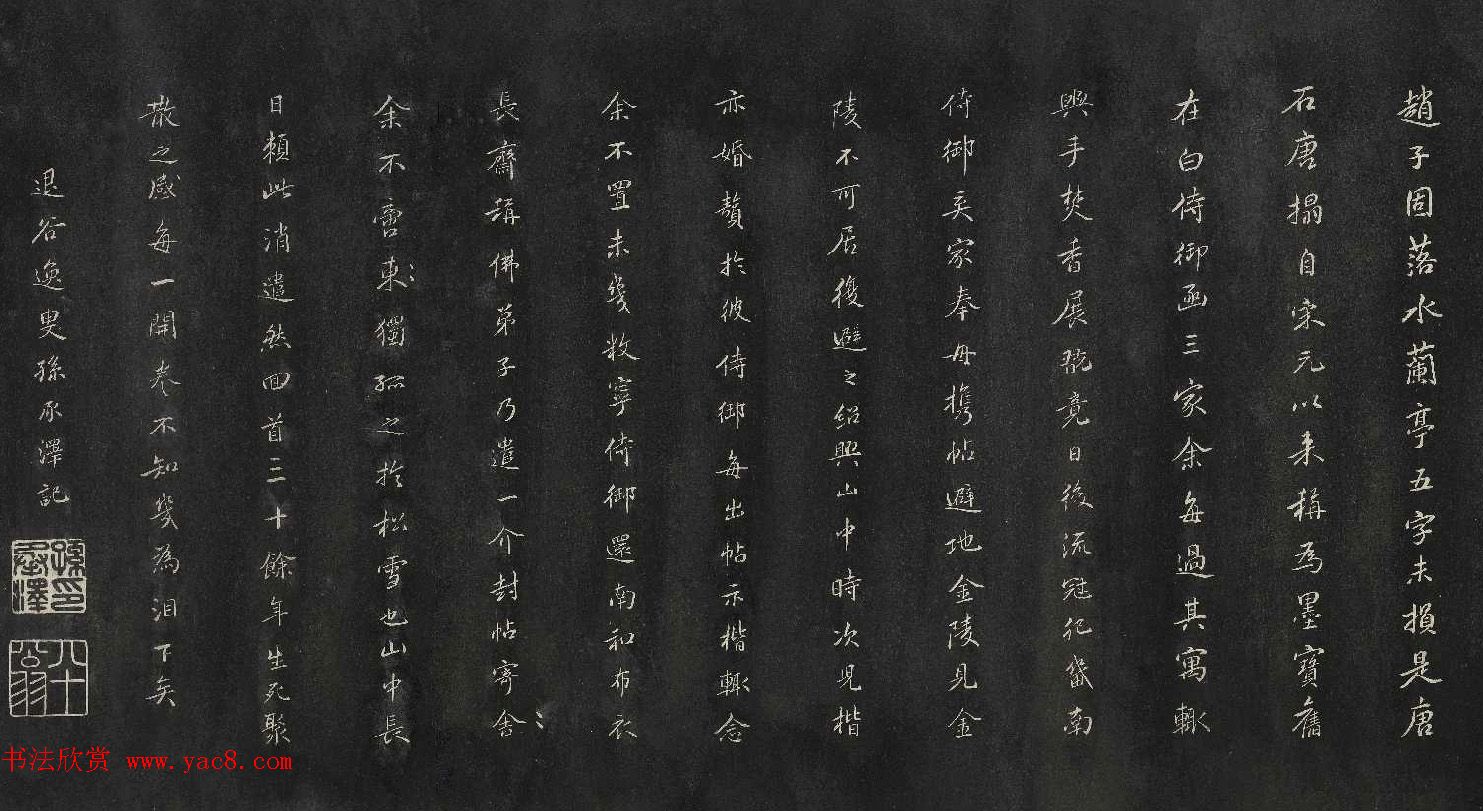 趙子固落水蘭亭五字未損是唐
石唐搨自宋元以来稱為墨寶舊
在白侍御函三家余每過其寓輙
與手焚香展翫竟日後流冦犯畿南
侍御弃家奉母携帖避地金陵見金
陵不可居復避之紹興山中時次児楷
亦婚贅於彼侍御每出帖示楷輙念
余不置未幾敉寧侍御還南和布衣
長齋稱佛弟子乃遣一介封帖寄舎
余不啻東獨孤之於松雪也山中長
日賴此消遣然回首三十餘年生死聚
散之感每一開卷不知幾為泪下矣
退谷逸叟孫承澤記
孫印承澤
八十翁
书法欣赏 www.yac8.com